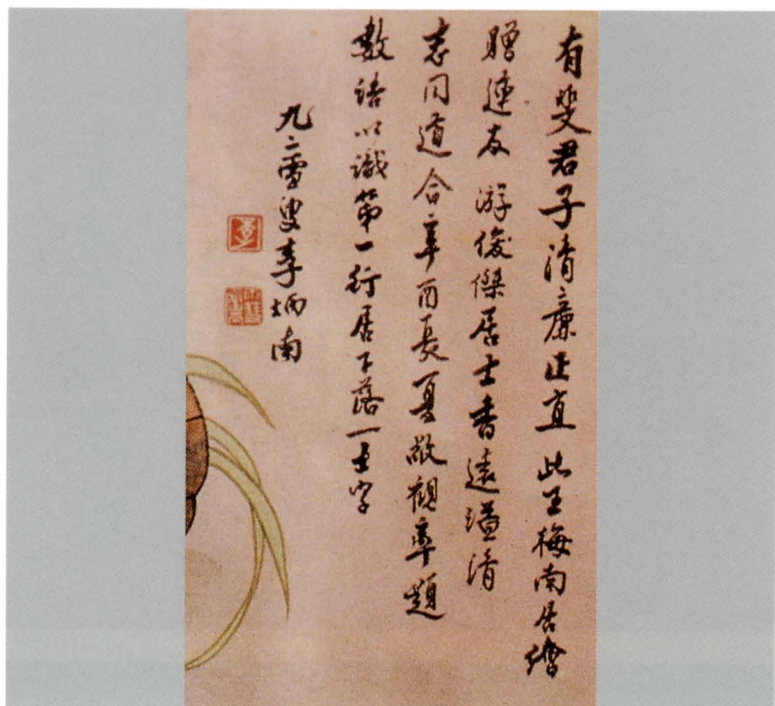 有斐君子清廉正直 此王梅南居繪
贈連友 游俊傑居士香遠溢清
志同道合辛酉長夏敬觀率題
數語以識第一行居下落一士字
九二雪叟李炳南